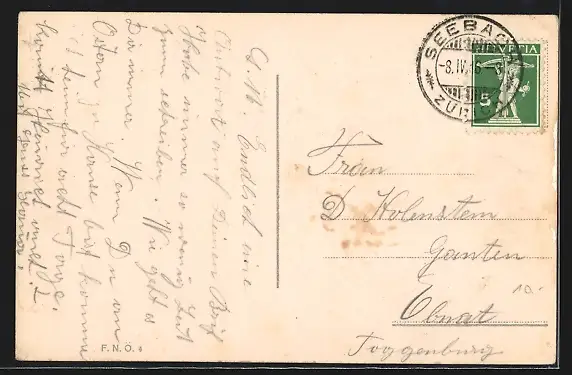 G. M. Endlich eine
Antwort auf Deinen Brief
Habe immer so wenig Zeit
zum schreiben. Wie geht es
Dir immer. Wenn Du an
Ostern zu Hause bist komme
ich dann für acht Tage.
SEEBACH
ZÜRICH
-8.IV.16-8
HELVETIA
5
Frau
D Holenstein
Ganten
Ebnat
Toggenburg
10.-
F.N.Ö.